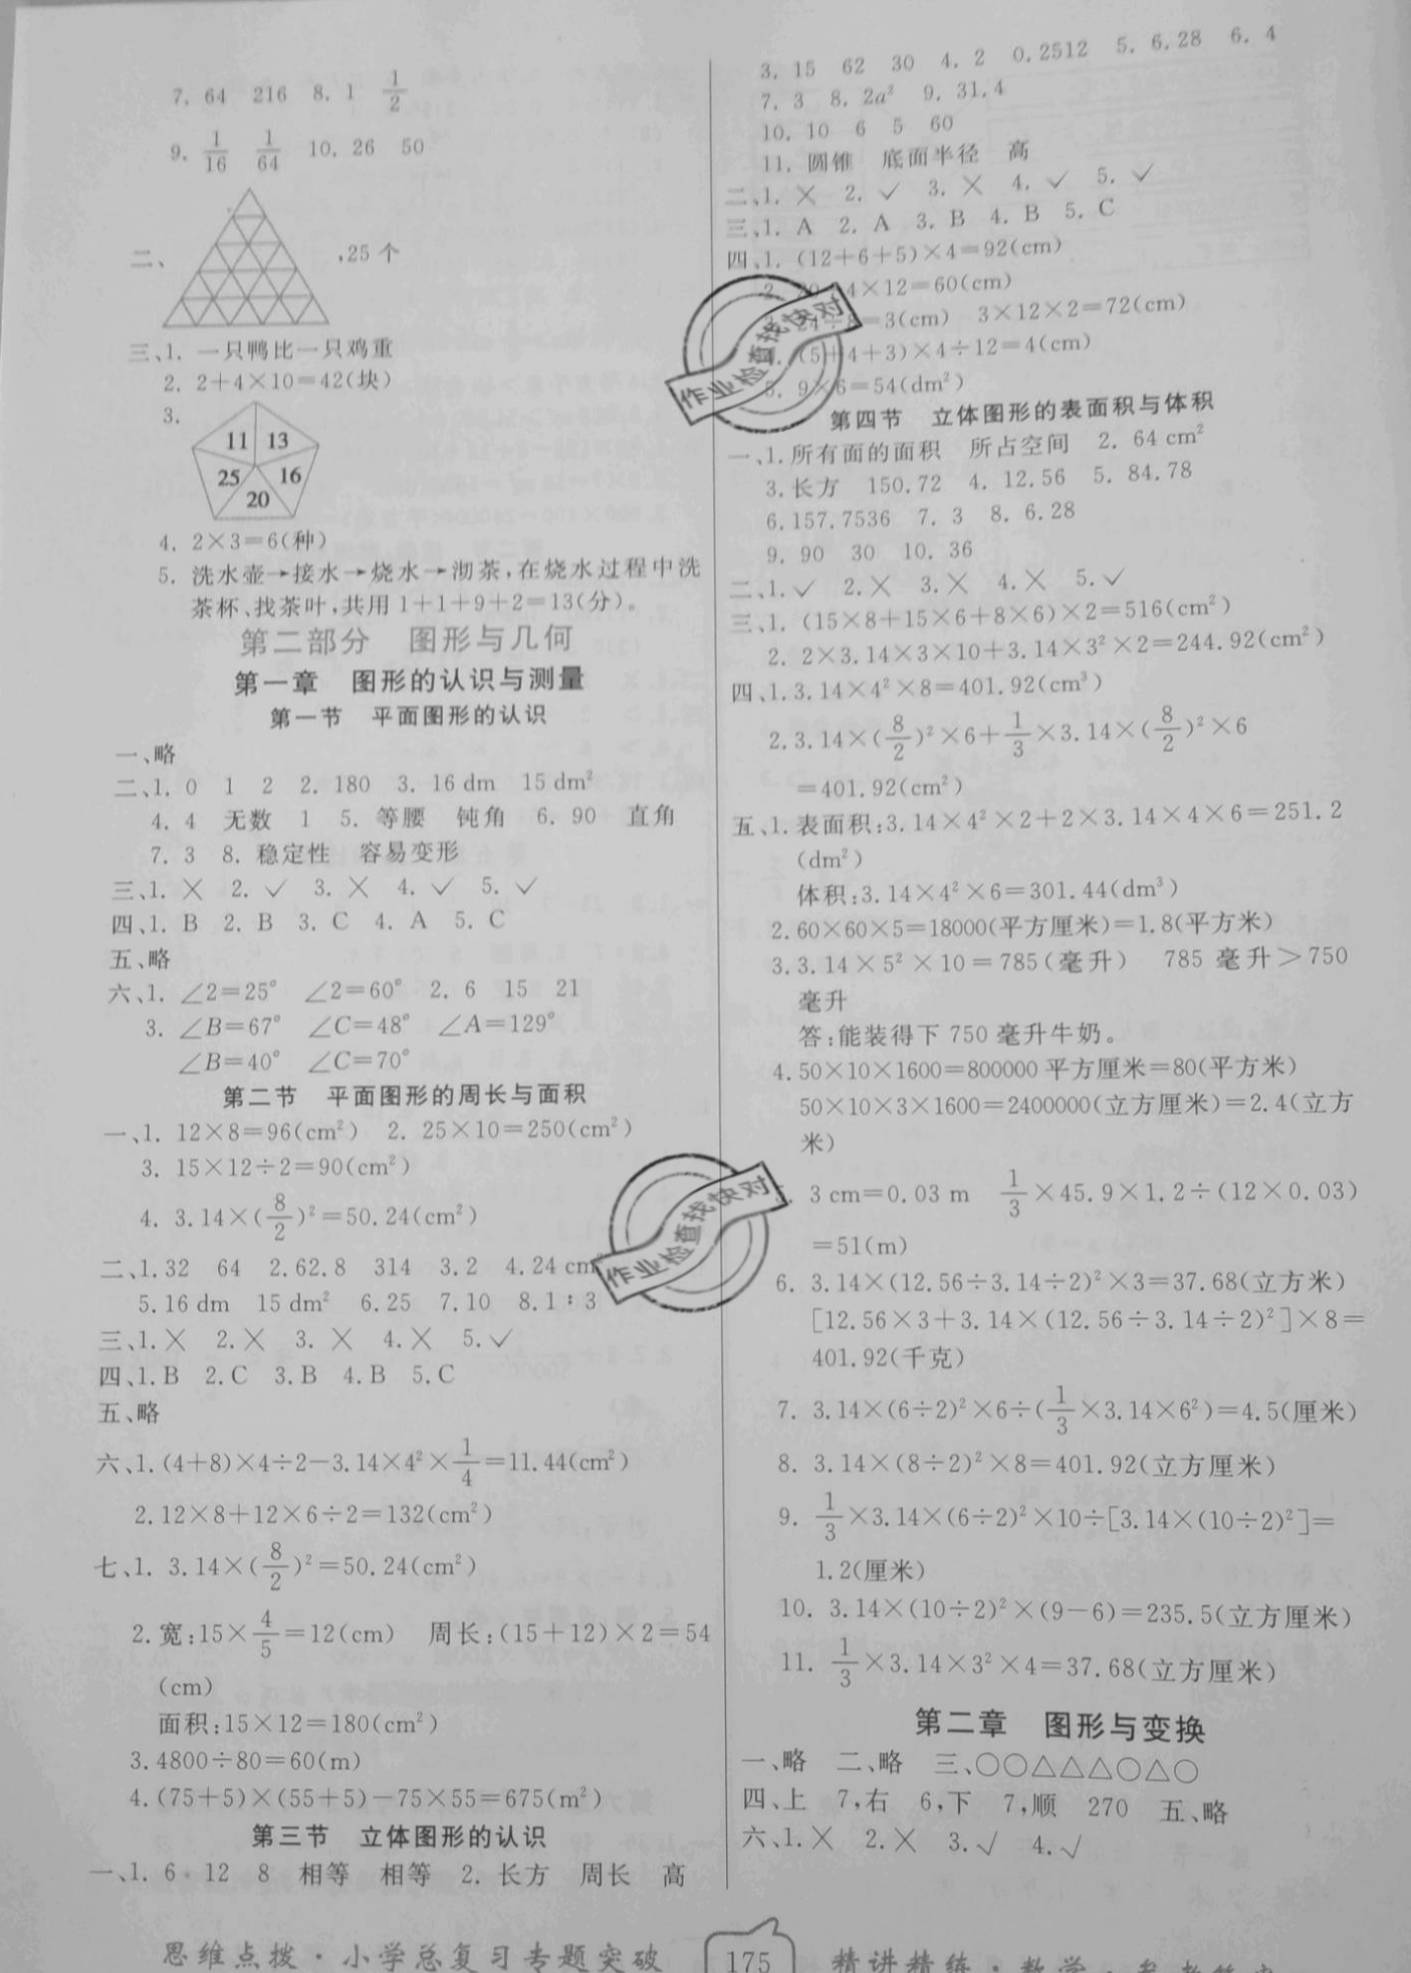 7. 64 216 8. 1 1/2
9. 1/16 1/64 10. 26 50
二、 ,25 个
三、1. 一只鸭比一只鸡重
2. 2+4×10=42(块)
3.
11 13
25 16
20
4. 2×3=6(种)
5. 洗水壶→接水→烧水→沏茶,在烧水过程中洗
茶杯、找茶叶,共用 1+1+9+2=13(分)。
第二部分 图形与几何
第一章 图形的认识与测量
第一节 平面图形的认识
一、略
二、1. 0 1 2 2. 180 3. 16 dm 15 dm²
4. 4 无数 1 5. 等腰 钝角 6. 90 直角
7. 3 8. 稳定性 容易变形
三、1. × 2. √ 3. × 4. √ 5. √
四、1. B 2. B 3. C 4. A 5. C
五、略
六、1. ∠2=25° ∠2=60° 2. 6 15 21
3. ∠B=67° ∠C=48° ∠A=129°
∠B=40° ∠C=70°
第二节 平面图形的周长与面积
一、1. 12×8=96(cm²) 2. 25×10=250(cm²)
3. 15×12÷2=90(cm²)
4. 3.14×(8/2)²=50.24(cm²)
二、1.32 64 2.62.8 314 3.2 4.24 cm
5.16 dm 15 dm² 6.25 7.10 8.1∶3
三、1.× 2.× 3. × 4.× 5.√
四、1.B 2.C 3.B 4.B 5.C
五、略
六、1.(4+8)×4÷2-3.14×4²×1/4=11.44(cm²)
2.12×8+12×6÷2=132(cm²)
七、1. 3.14×(8/2)²=50.24(cm²)
2.宽:15×4/5=12(cm) 周长:(15+12)×2=54
(cm)
面积:15×12=180(cm²)
3.4800÷80=60(m)
4.(75+5)×(55+5)-75×55=675(m²)
第三节 立体图形的认识
一、1. 6 12 8 相等 相等 2. 长方 周长 高
3. 15 62 30 4. 2 0.2512 5. 6.28 6. 4
7. 3 8. 2a² 9. 31.4
10. 10 6 5 60
11. 圆锥 底面半径 高
二、1. × 2. √ 3. × 4. √ 5. √
三、1. A 2. A 3. B 4. B 5. C
四、1. (12+6+5)×4=92(cm)
2. 4×12=60(cm)
24÷8=3(cm) 3×12×2=72(cm)
(5+4+3)×4÷12=4(cm)
5. 9×6=54(dm²)
第四节 立体图形的表面积与体积
一、1.所有面的面积 所占空间 2. 64 cm²
3.长方 150.72 4. 12.56 5. 84.78
6.157.7536 7. 3 8. 6.28
9. 90 30 10. 36
二、1.√ 2.× 3.× 4.× 5.√
三、1. (15×8+15×6+8×6)×2=516(cm²)
2. 2×3.14×3×10+3.14×3²×2=244.92(cm²)
四、1.3.14×4²×8=401.92(cm³)
2.3.14×(8/2)²×6+1/3×3.14×(8/2)²×6
=401.92(cm²)
五、1.表面积:3.14×4²×2+2×3.14×4×6=251.2
(dm²)
体积:3.14×4²×6=301.44(dm³)
2.60×60×5=18000(平方厘米)=1.8(平方米)
3.3.14×5²×10=785(毫升) 785 毫升>750
毫升
答:能装得下 750 毫升牛奶。
4.50×10×1600=800000 平方厘米=80(平方米)
50×10×3×1600=2400000(立方厘米)=2.4(立方
米)
3 cm=0.03 m 1/3×45.9×1.2÷(12×0.03)
=51(m)
6. 3.14×(12.56÷3.14÷2)²×3=37.68(立方米)
[12.56×3+3.14×(12.56÷3.14÷2)²]×8=
401.92(千克)
7. 3.14×(6÷2)²×6÷(1/3×3.14×6²)=4.5(厘米)
8. 3.14×(8÷2)²×8=401.92(立方厘米)
9. 1/3×3.14×(6÷2)²×10÷[3.14×(10÷2)²]=
1.2(厘米)
10. 3.14×(10÷2)²×(9-6)=235.5(立方厘米)
11. 1/3×3.14×3²×4=37.68(立方厘米)
第二章 图形与变换
一、略 二、略 三、○○△△△○△○
四、上 7,右 6,下 7,顺 270 五、略
六、1.× 2.× 3.√ 4.√
作业检查找快对
作业检查找快对
思维点拨·小学总复习专题突破
175
精讲精练·数学·参考答案